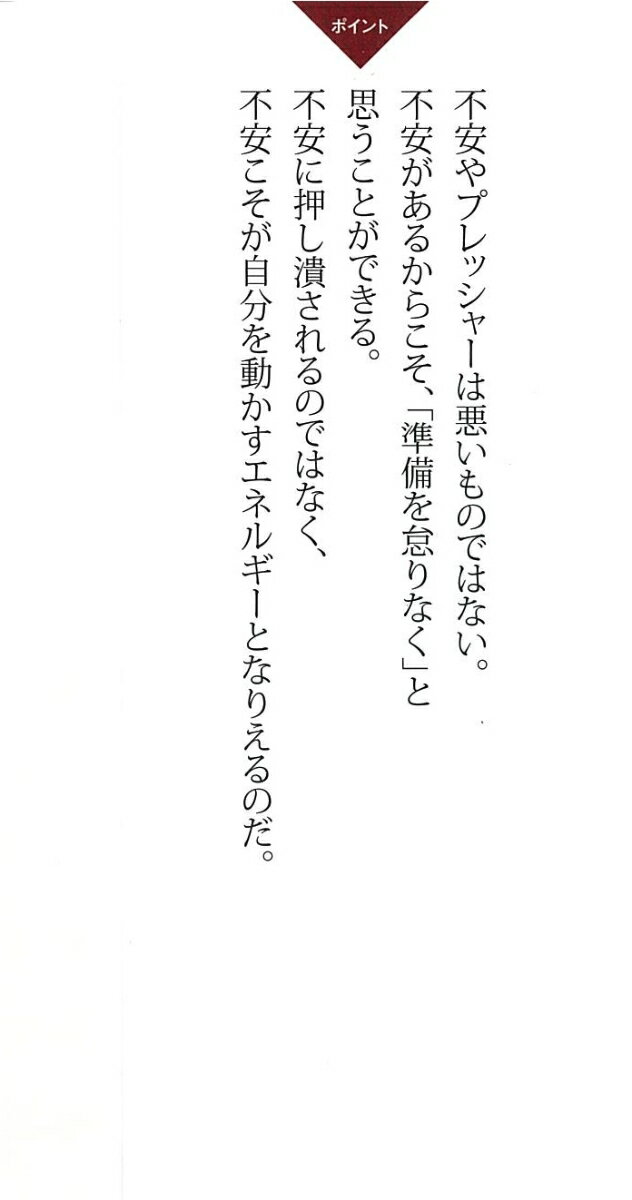 ポイント
不安やプレッシャーは悪いものではない。
不安があるからこそ、「準備を怠りなく」と
思うことができる。
不安に押し潰されるのではなく、
不安こそが自分を動かすエネルギーとなりえるのだ。